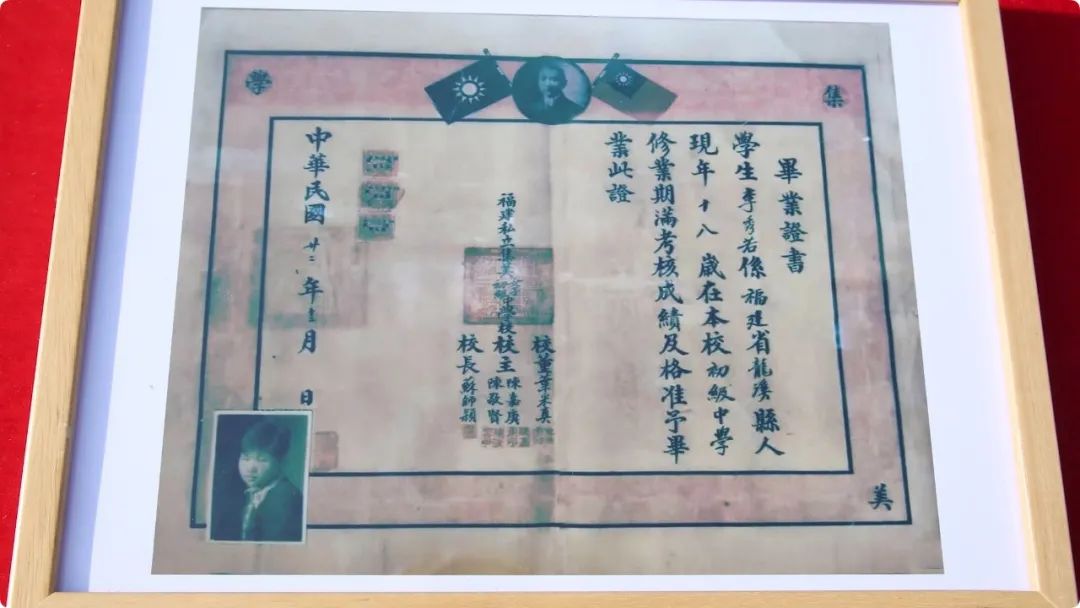 集
美
學
畢業證書
學生李秀若係福建省龍溪縣人
現年十八歲在本校初級中學
修業期滿考核成績及格准予畢
業此證
校董葉采真
福建私立集美初級中學校校主陳嘉庚
陳敬賢
校長蘇師穎
中華民國廿二年 月 日